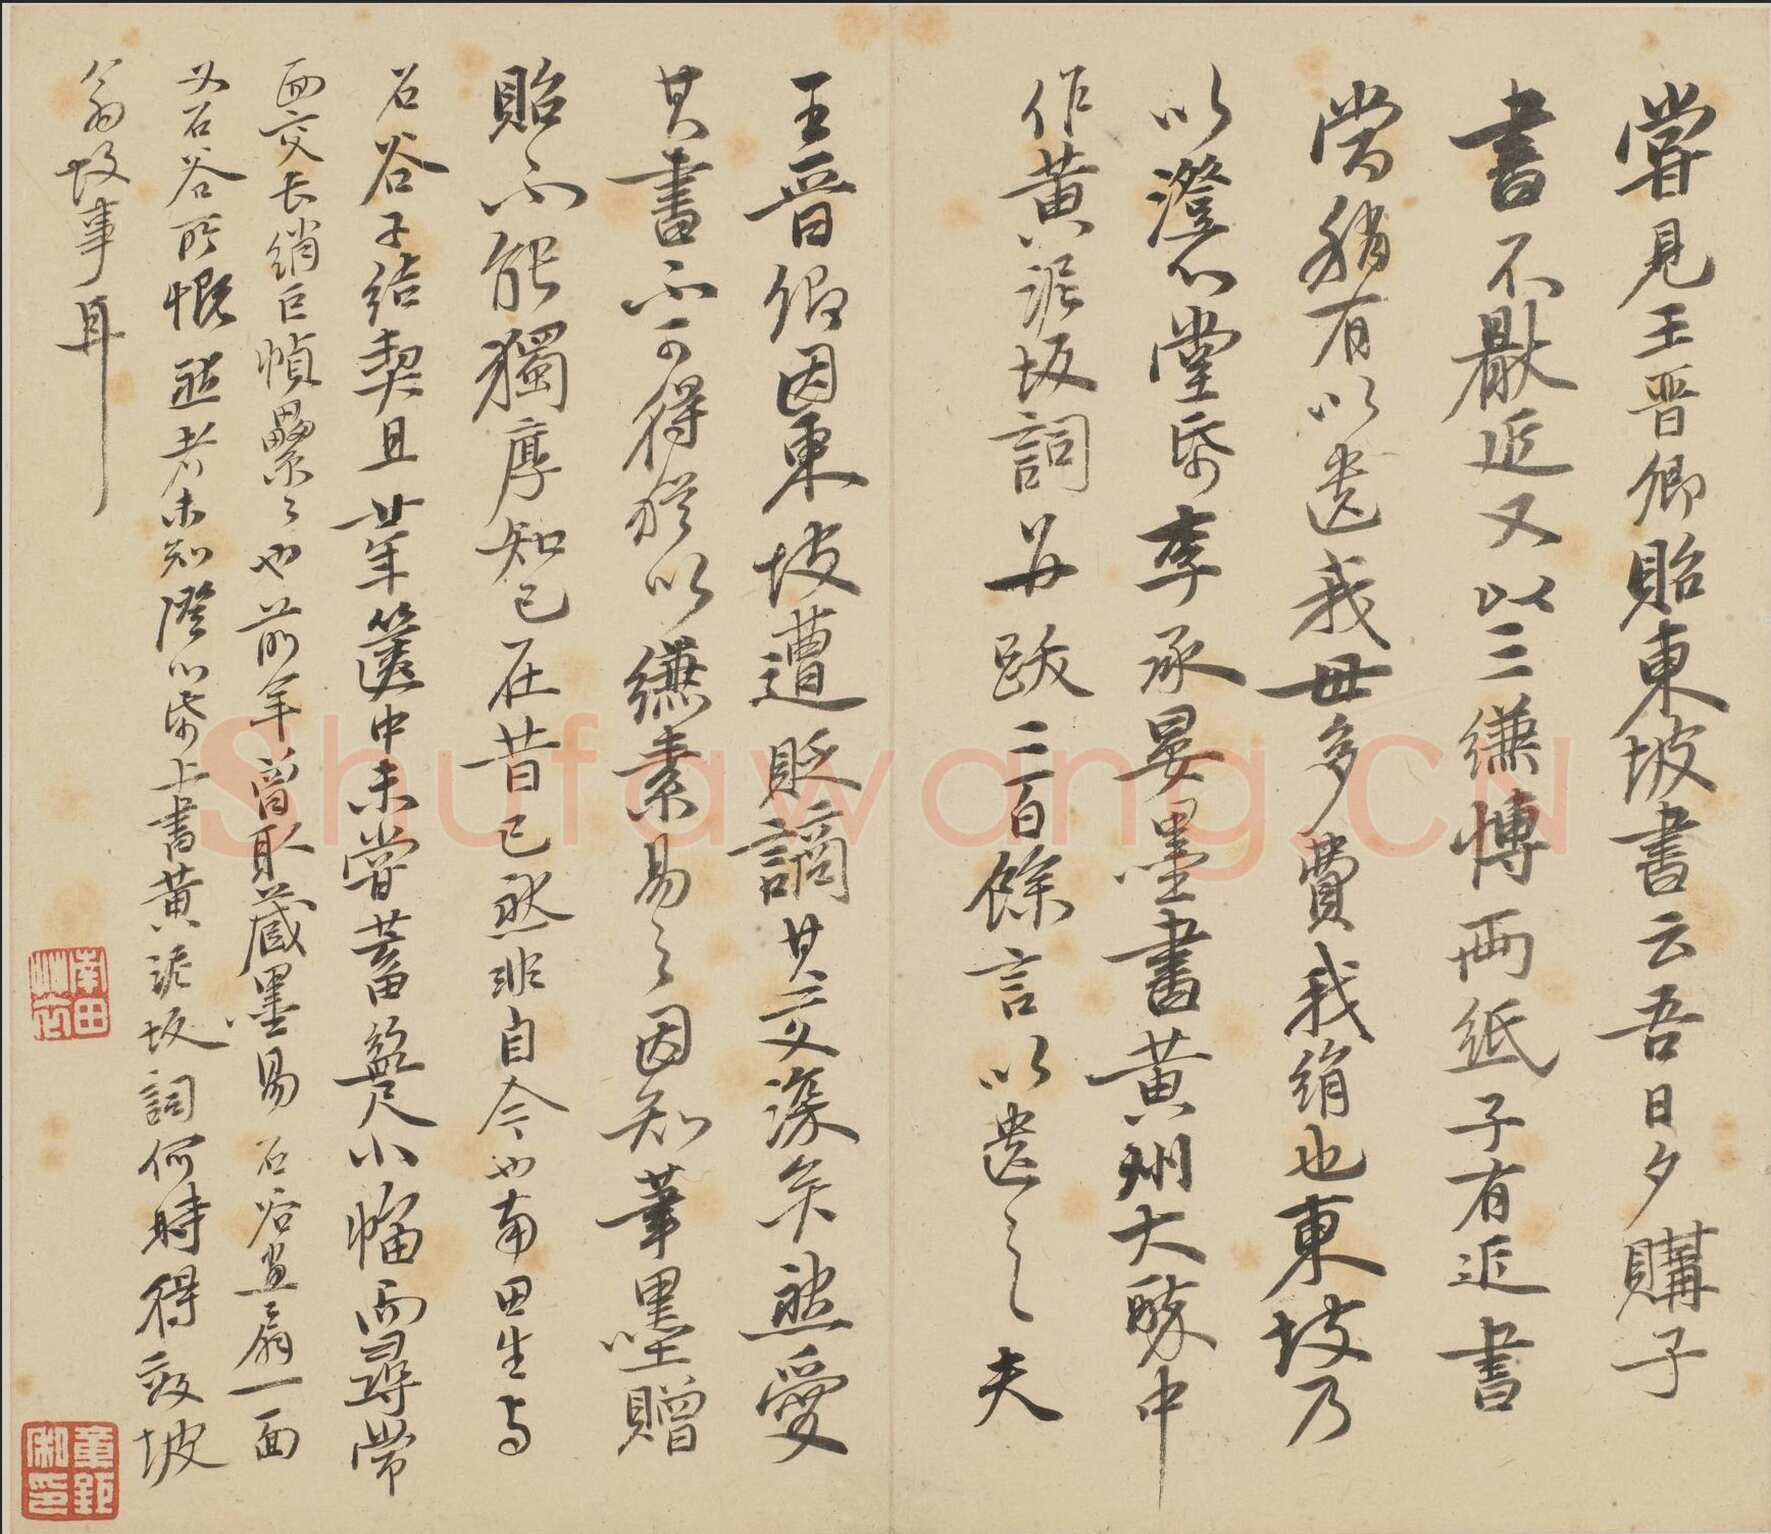 嘗見王晉卿貽東坡書云吾日夕購子
書不厭近又以三縑博兩紙子有近書
當稍有以遺我毋多費我絹也東坡乃
以澄心堂紙李承晏墨書黃州大醉中
作黃泥坂詞并跋二百餘言以遺之夫
王晉卿因東坡遭貶謫其交深矣然愛
其書不可得猶以縑素易之因知筆墨贈
貽不能獨厚知己在昔已然非自今也南田生與
石谷子結契且廿年篋中未嘗蓄盈尺小幅而尋常
面交長綃巨幀纍纍也前年曾取藏墨易石谷畫扇一面
又石谷所慨然者未知澄心紙上書黃泥坂詞何時得效坡
翁故事耳
南田
Shufawang.CN